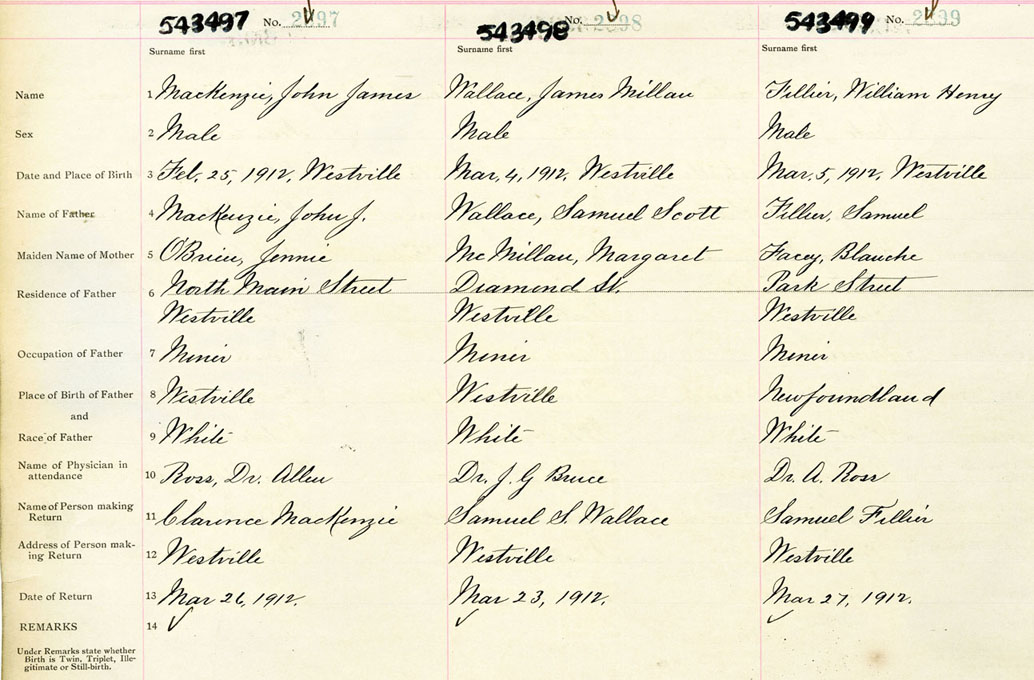 543497 No. 2397 543498 No. 2398 543499 No. 2399
Surname first Surname first Surname first
Name 1 Mackenzie, John James Wallace, James Millan Fillier, William Henry
Sex 2 Male Male Male
Date and Place of Birth 3 Feb. 25, 1912, Westville Mar. 4, 1912, Westville Mar. 5, 1912, Westville
Name of Father 4 MacKenzie, John J. Wallace, Samuel Scott Fillier, Samuel
Maiden Name of Mother 5 O'Brien, Jennie McMillan, Margaret Facey, Blanche
Residence of Father 6 North Main Street Diamond St. Park Street
Westville Westville Westville
Occupation of Father 7 Miner Miner Miner
Place of Birth of Father 8 Westville Westville Newfoundland
and
Race of Father 9 White White White
Name of Physician in
attendance 10 Ross, Dr. Allen Dr. J. G Bruce Dr. A. Ross
Name of Person making
Return 11 Clarence MacKenzie Samuel S. Wallace Samuel Fillier
Address of Person mak-
ing Return 12 Westville Westville Westville
Date of Return 13 Mar 26, 1912. Mar 23, 1912. Mar 27, 1912.
REMARKS 14
Under Remarks state whether
Birth is Twin, Triplet, Ille-
gitimate or Still-birth.